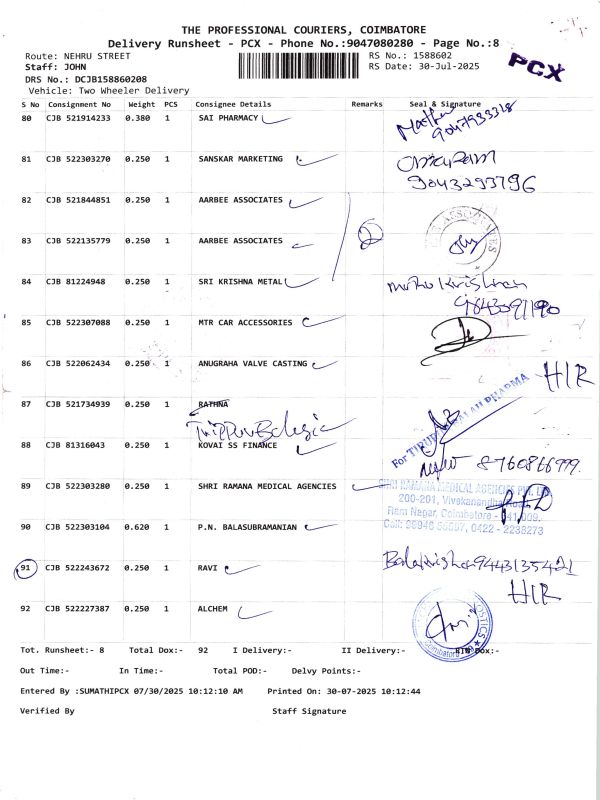 THE PROFESSIONAL COURIERS, COIMBATORE
Delivery Runsheet - PCX - Phone No.:9047080280 - Page No.:8
Route: NEHRU STREET
RS No.: 1588602
Staff: JOHN
RS Date: 30-Jul-2025
PCX
DRS No.: DCJB158860208
Vehicle: Two Wheeler Delivery
S No Consignment No Weight PCS Consignee Details Remarks Seal & Signature
80 CJB 521914233 0.380 1 SAI PHARMACY
9047933318
81 CJB 522303270 0.250 1 SANSKAR MARKETING
9043293796
82 CJB 521844851 0.250 1 AARBEE ASSOCIATES
2
83 CJB 522135779 0.250 1 AARBEE ASSOCIATES
84 CJB 81224948 0.250 1 SRI KRISHNA METAL
85 CJB 522307088 0.250 1 MTR CAR ACCESSORIES
86 CJB 522062434 0.250 1 ANUGRAHA VALVE CASTING
H/R
87 CJB 521734939 0.250 1 RATHNA
88 CJB 81316043 0.250 1 KOVAI SS FINANCE
8760866999
89 CJB 522303280 0.250 1 SHRI RAMANA MEDICAL AGENCIES
SHRI RAMANA MEDICAL AGENCIES PVT. LTD.
200-201, Vivekanandha Road,
Ram Nagar, Coimbatore - 641 009.
90 CJB 522303104 0.620 1 P.N. BALASUBRAMANIAN
Balakrishan 9443135421
91 CJB 522243672 0.250 1 RAVI
H/R
92 CJB 522227387 0.250 1 ALCHEM
Tot. Runsheet:- 8 Total Dox:- 92 I Delivery:- II Delivery:- RTN Dox:-
Out Time:- In Time:- Total POD:- Delvy Points:-
Entered By :SUMATHIPCX 07/30/2025 10:12:10 AM Printed On: 30-07-2025 10:12:44
Verified By Staff Signature